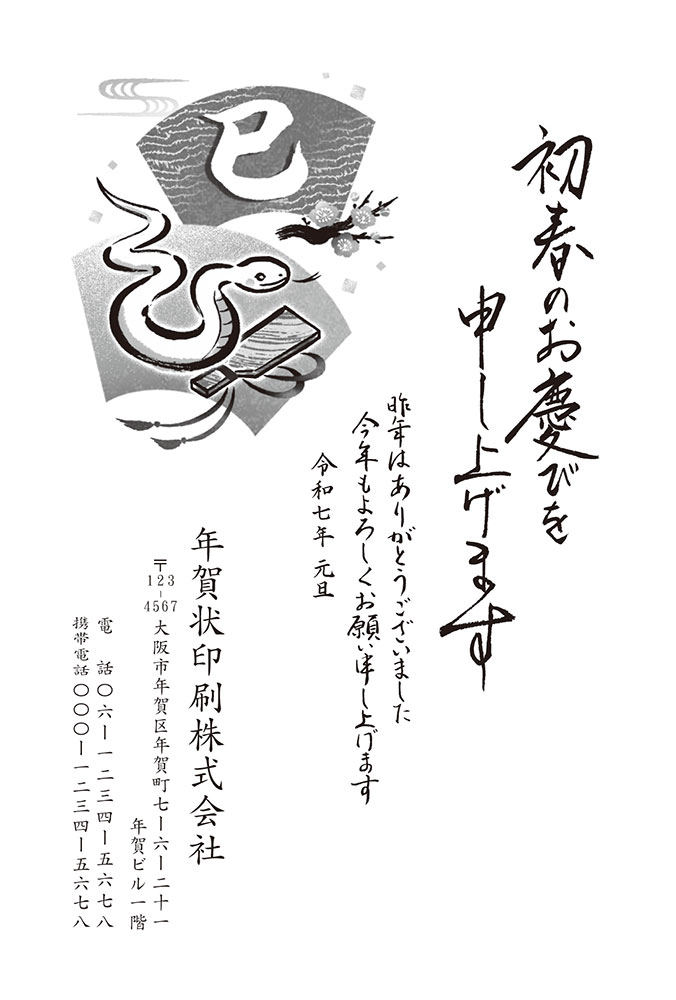 初春のお慶びを
申し上げます
巳
昨年はありがとうございました
今年もよろしくお願い申し上げます
令和七年 元旦
年賀状印刷株式会社
〒123-4567 大阪市年賀区年賀町七ー六ー二十一
年賀ビル一階
電話〇六ー一二三四ー五六七八
携帯電話〇〇〇ー一二三四ー五六七八